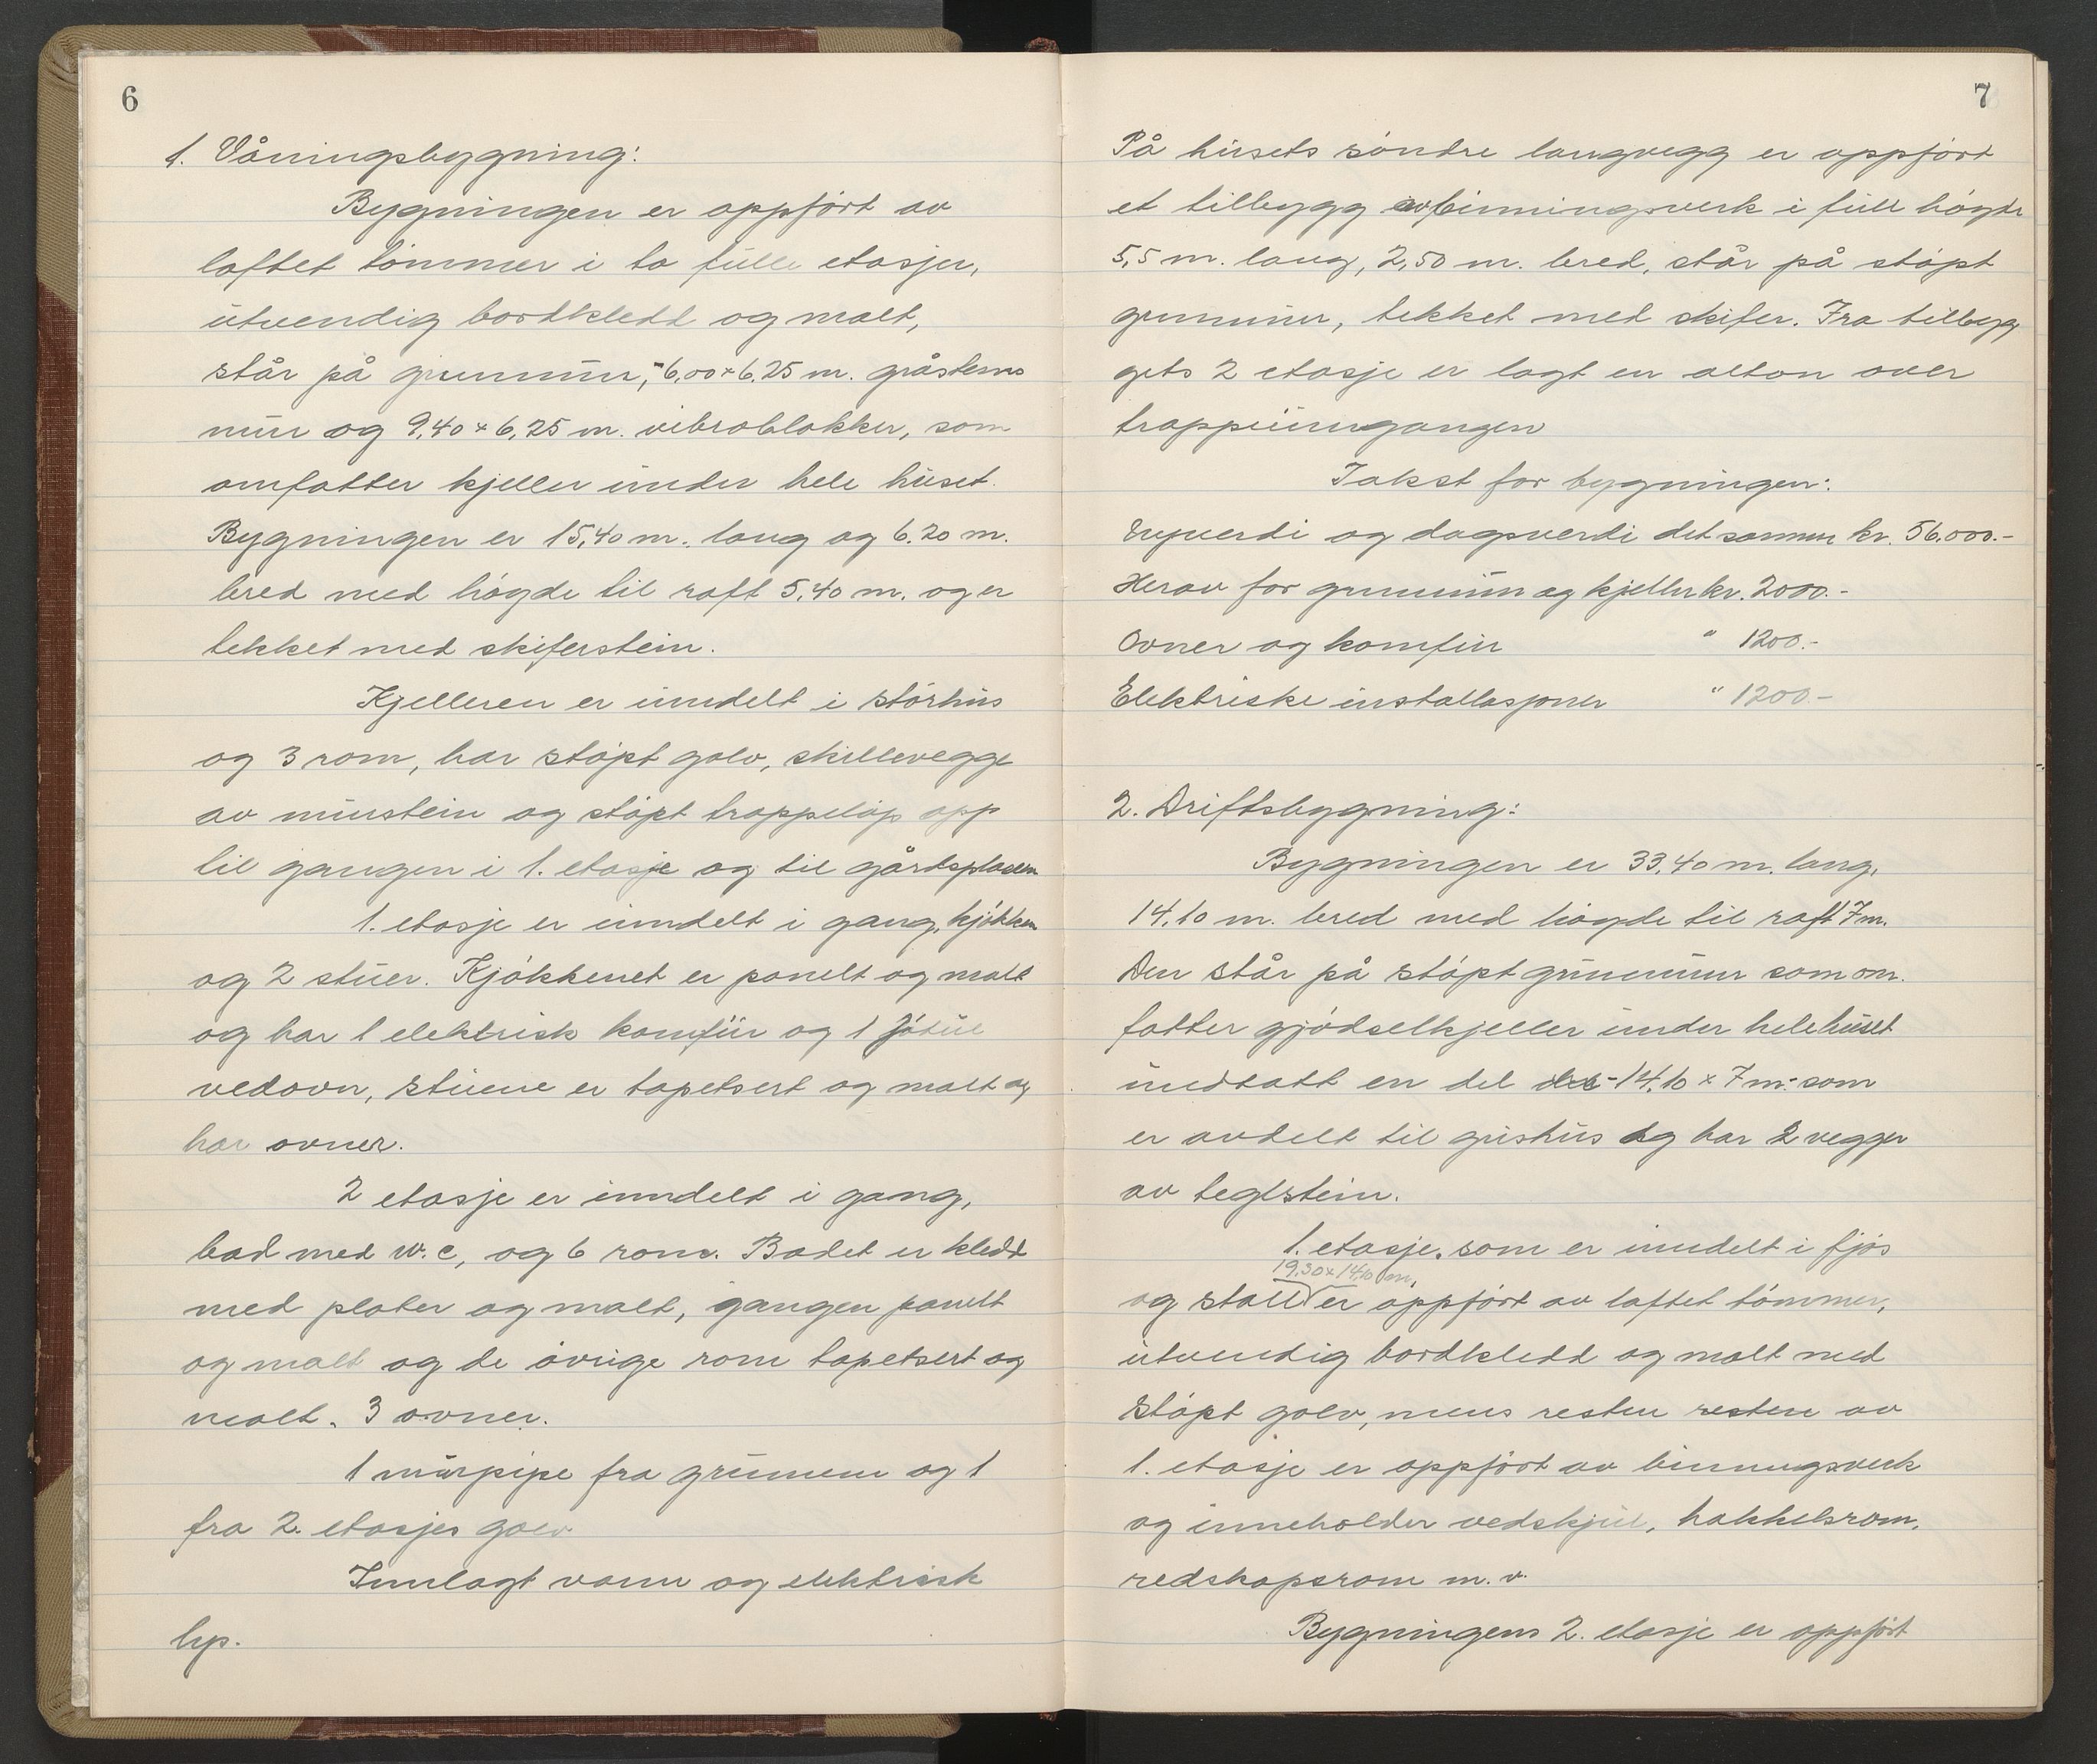 6
1. Våningsbygning:
Bygningen er oppført av
laftet tømmer i to fulle etasjer,
utvendig bordkledd og malt,
står på grunnmur, - 6,00 x 6,25 m. gråsteins
mur og 9,40 x 6,25 m. vibroblokker, som
omfatter kjeller under hele huset.
Bygningen er 15,40 m. lang og 6.20 m.
bred med høgde til raft 5,40 m. og er
tekket med skiferstein.
Kjelleren er inndelt i størhus
og 3 rom, har støpt golv, skillevegge
av murstein og støpt trappeløp opp
til gangen i 1. etasje og til gårdsplassen
1. etasje er inndelt i gang, kjøkken
og 2 stuer. Kjøkkenet er panelt og malt
og har 1 elektrisk komfür og 1 Jøtul
vedovn, stuene er tapetsert og malt og
har ovner.
2 etasje er inndelt i gang,
bad med w.c, og 6 rom. Badet er kledd
med plater og malt, gangen panelt
og malt og de øvrige rom tapetsert og
malt. 3 ovner.
1 murpipe fra grunnen og 1
fra 2. etasjes golv.
Innlagt vann og elektrisk
lys.
7
På husets søndre langvegg er oppført
et tilbygg av binningsverk i full høgde
5,5 m. lang, 2,50 m. bred, står på støpt
grunnmur, tekket med skifer. Fra tilbygg
gets 2 etasje er lagt en alton over
trappeinngangen
Takst for bygningen:
Nyverdi og dagsverdi det samme kr. 56.000.-
Herav for grunnmur og kjeller kr. 2000.-
Ovner og komfur " 1200.-
Elektriske installasjoner " 1200-
2. Driftsbygning:
Bygningen er 33,40 m. lang,
14,10 m. bred med høgde til raft 7m.
Den står på støpt grunnmur som om-
fatter gjødselkjeller under hele huset
undtatt en del - 14,10 x 7 m- som
er avdelt til grishus og har 2 vegger
av teglstein.
1. etasje, som er inndelt i fjøs
19,30 x 14,10 m,
og stall er oppført av laftet tømmer,
utvendig bordkledd og malt med
støpt golv, mens resten resten av
1. etasje er oppført av binningsverk
og inneholder vedskjul, hakkelsrom,
redskapsrom m.v.
Bygningens 2. etasje er oppført